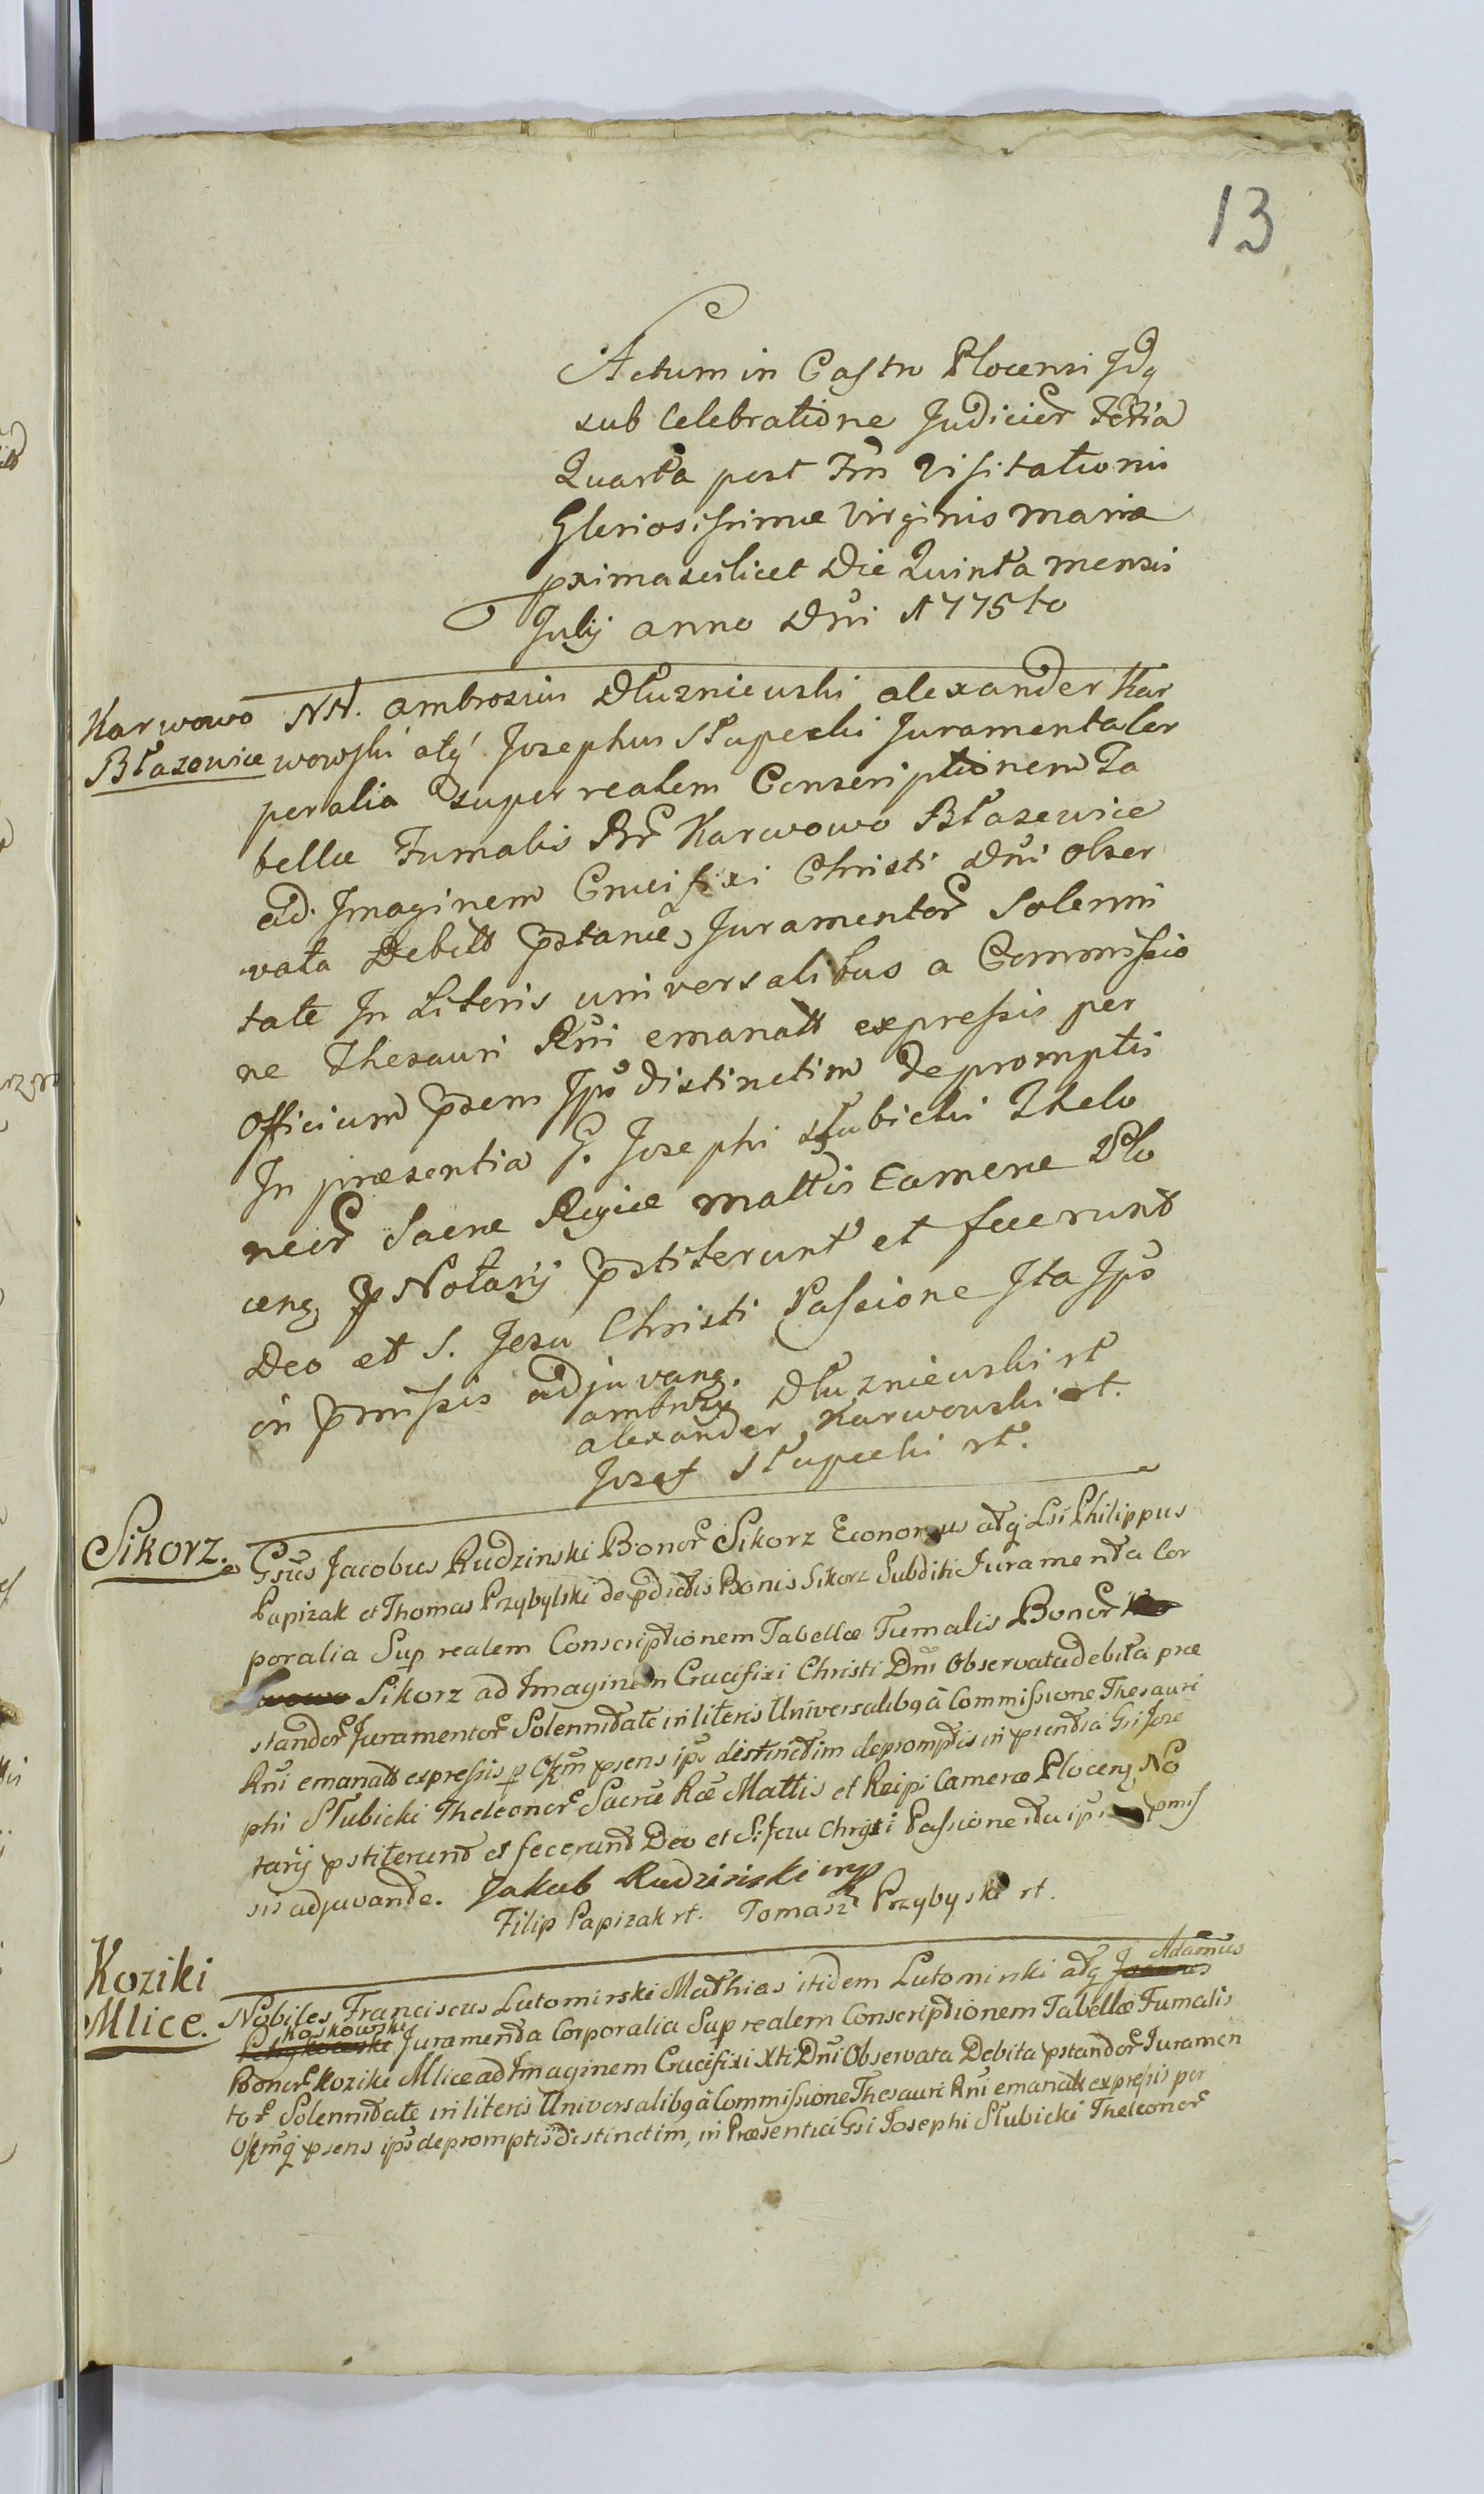 13
Actum in Castro Plocensi Idq
sub Celebratione Judicior Feria
Quarta post Fm Visitationis
Gloriosissimæ Virginis Mariæ
proxima scilicet Die Quinta mensis
Julij anno Dni 1775to
Karwowo
Błazewice
NN. ambrosius Dłuzniewski alexander Kar
wowski atq Josephus Słupecki Juramenta Cor
poralia super realem Conscriptionem Ta
bellæ Fumalis Br Karwowo Błazewice
ad Imaginem Crucifixi Christi Dni obser
vata Debitt pstand Juramentor Solenni
tate In Literis universalibus a Commissio
ne Thesauri Rni emanatt expressis per
Officium psens Ips distinctim depromptis
In præsentia G. Josephi Słubicki Thelo
neor Sacræ Regiæ mattis Cameræ Plo
ceng Notarij pstiterunt et fecerunt
Deo et S. Jesu Christi Passione Ita Ips
in pmissis adjuvang.
ambrozy Dłuzniewski rt
alexander Karwowski rt.
Josef Słupecki rt.
Sikorz.
Gsus Jacobus Rudzinski Bonor Sikorz Economus atq Lsi Philippus
Papizak et Thomas Przybylski de pdictis Bonis Sikorz Subditi Juramenta Cor
poralia Sup realem Conscriptionem Tabellæ Fumalis Bonor
Sikorz ad Imaginem Crucifixi Christi Dni Observata debita præ
standor Juramentor Solennitate in literis Universalibq à Commissione Thesauri
Rni emanatt expressis p Offm psens ips distinctim depromptis in psentia Gsi Jose
phi Słubicki Theleonor Sacræ Ræ Mattis et Reipi Cameræ Ploceng No
tarij pstiterunt et fecerunt Deo et S: Jezu Chrysti Passione ita ips pmis
sis adjuvande. Jakub Rudzinski mp
Filip Papizak rt. Tomasz Przybyski rt.
Koziki
Mlice.
Adamus
Nobiles Franciscus Lutomirski Mathias itidem Lutomirski atq Joannes
Koskowski
Juramenta Corporalia Sup realem Conscriptionem Tabellæ Fumalis
Bonor Koziki Mlice ad Imaginem Crucifixi Xti Dni Observata Debita pstandor Juramen
tor Solennitate in literis Universalibq à Commissione Thesauri Rni emanatt expressis per
Offmq psens ips depromptis distinctim, in Præsentia Gsi Josephi Słubicki Theleonor